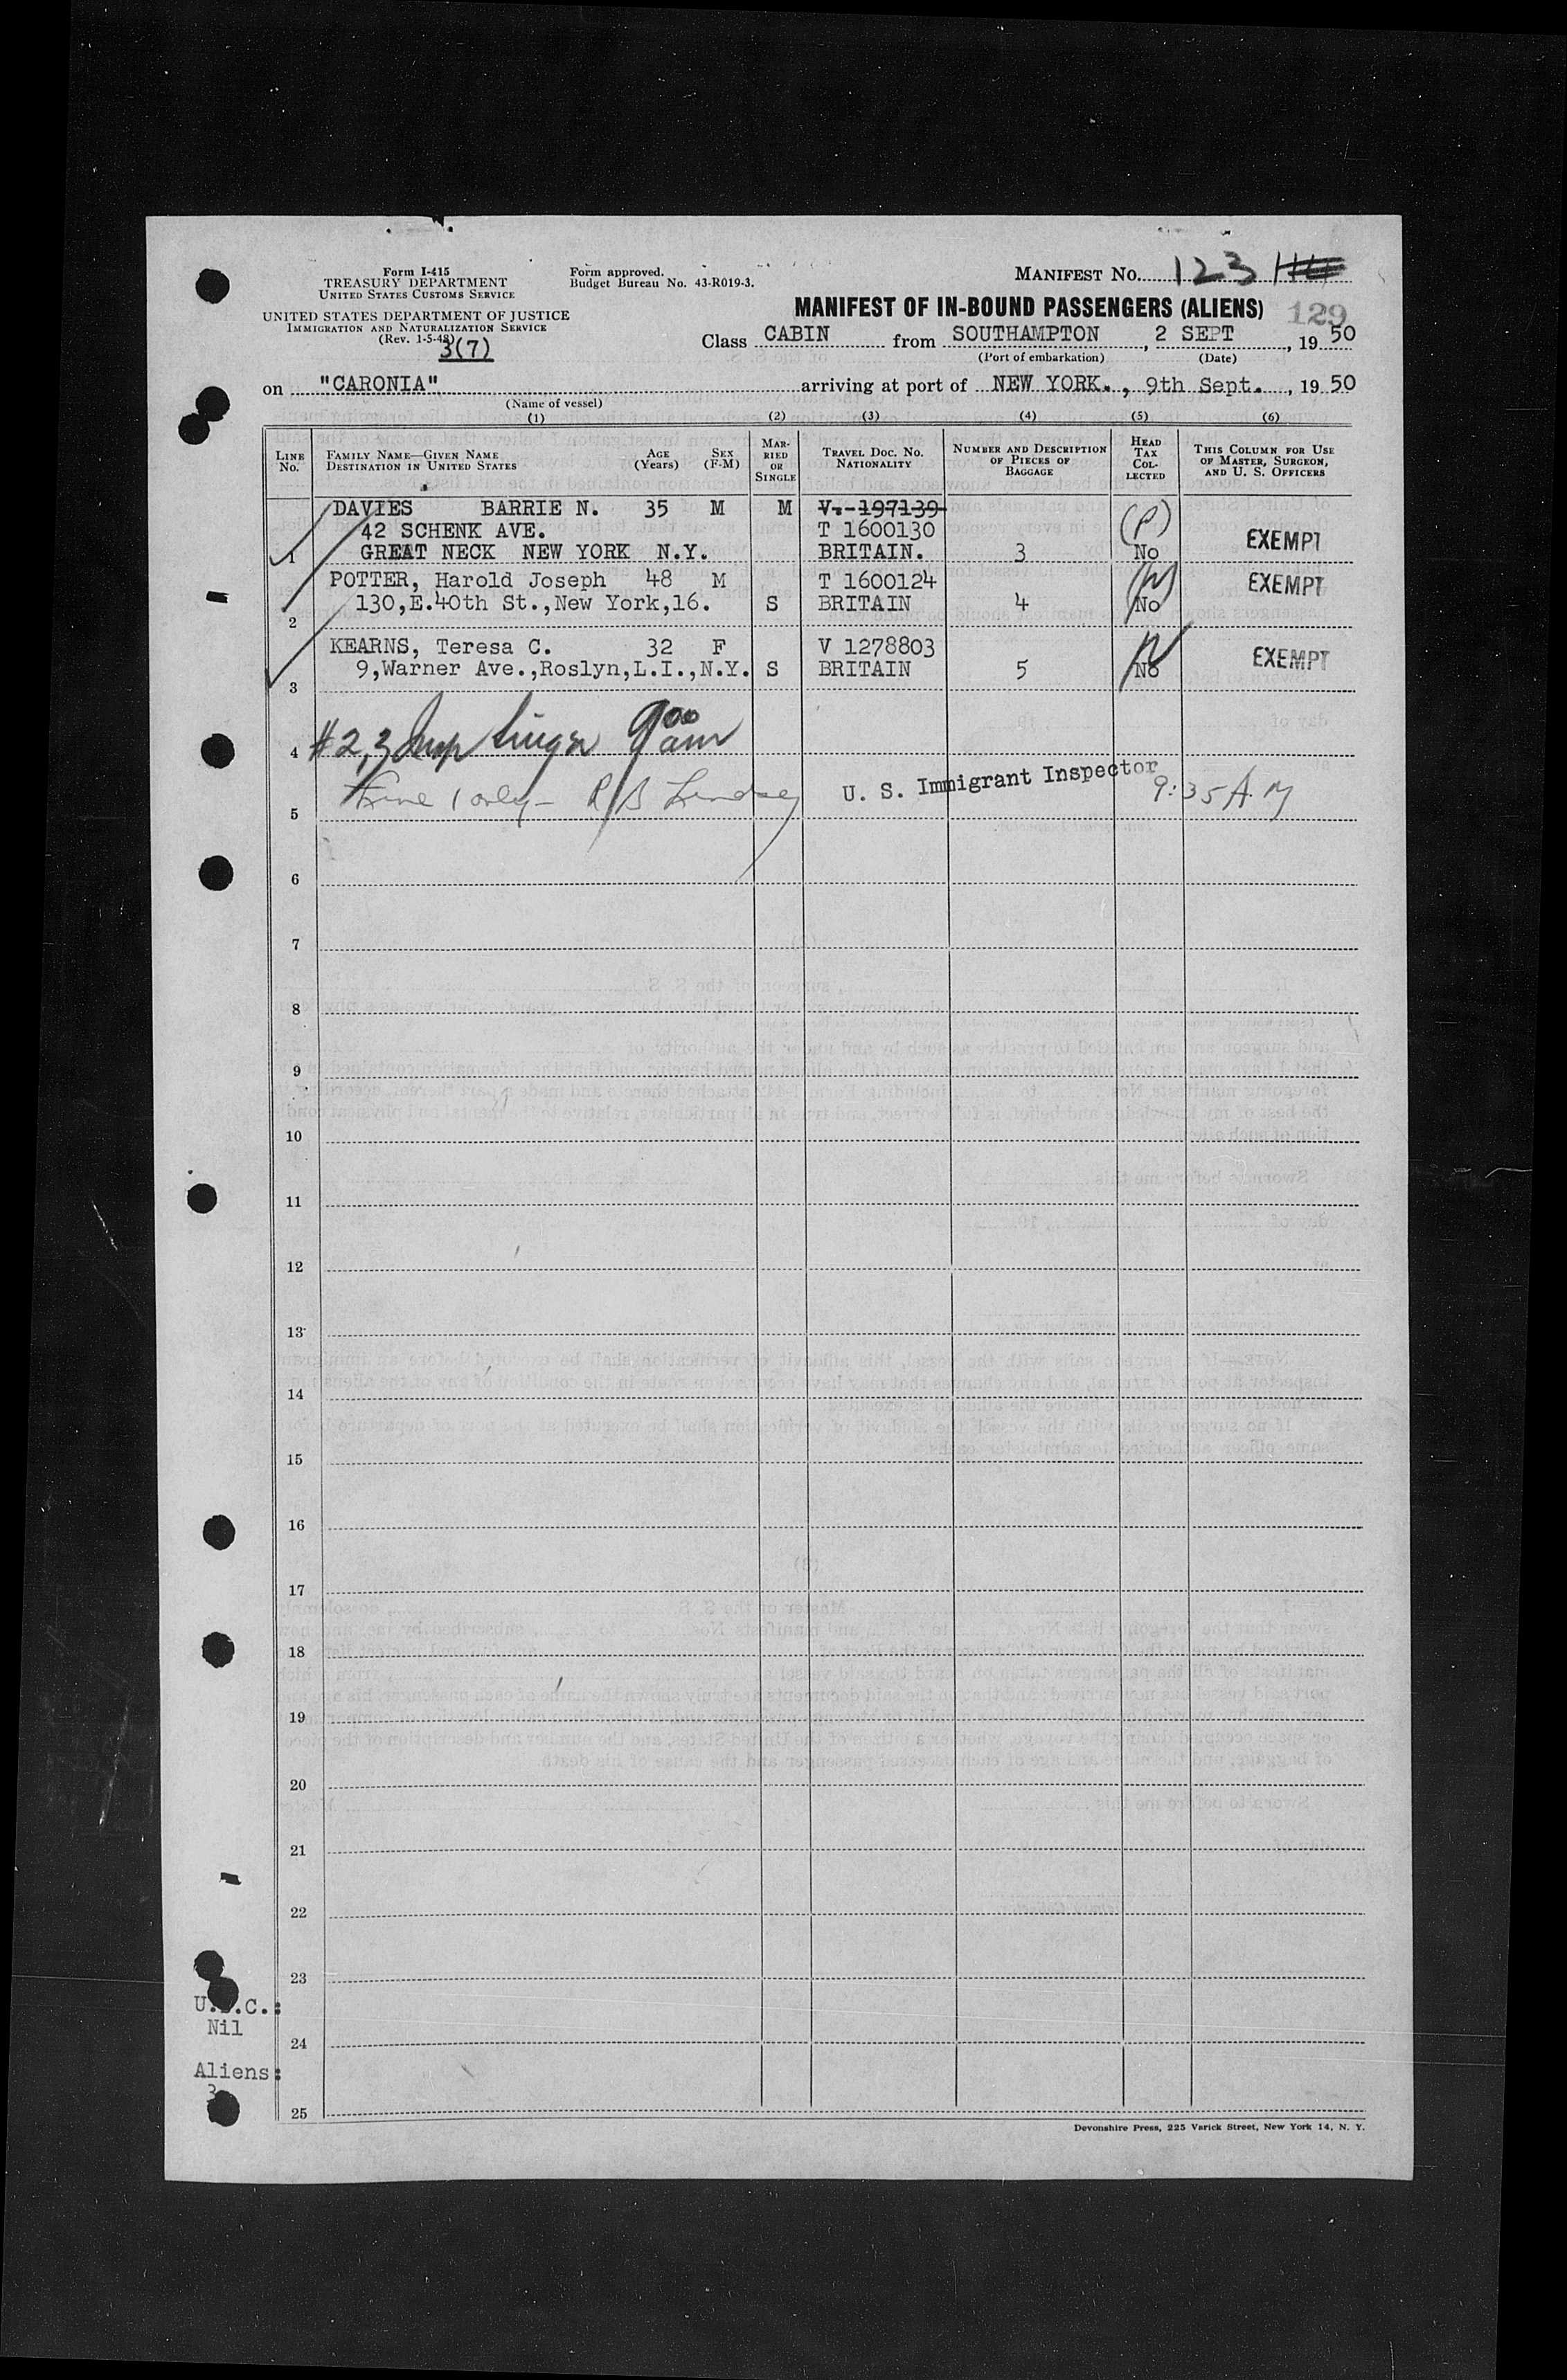 Form I-415
TREASURY DEPARTMENT
UNITED STATES CUSTOMS SERVICE
UNITED STATES DEPARTMENT OF JUSTICE
IMMIGRATION AND NATURALIZATION SERVICE
(Rev. 1-5-48)
3(7)
Form approved.
Budget Bureau No. 43-R019-3.
MANIFEST No. 123
MANIFEST OF IN-BOUND PASSENGERS (ALIENS)
129
Class CABIN from SOUTHAMPTON, 2 SEPT, 19 50
(Port of embarkation) (Date)
on "CARONIA" arriving at port of NEW YORK., 9th Sept., 19 50
(Name of vessel)
(1) (2) (3) (4) (5) (6)
LINE No. FAMILY NAME—GIVEN NAME DESTINATION IN UNITED STATES AGE (Years) SEX (F-M) MARRIED OR SINGLE TRAVEL DOC. NO. NATIONALITY NUMBER AND DESCRIPTION OF PIECES OF BAGGAGE HEAD TAX COLLECTED THIS COLUMN FOR USE OF MASTER, SURGEON, AND U. S. OFFICERS
DAVIES BARRIE N. 35 M M V.-197139
42 SCHENK AVE. T 1600130 (P)
1 GREAT NECK NEW YORK N.Y. BRITAIN. 3 No EXEMPT
POTTER, Harold Joseph 48 M T 1600124 EXEMPT
130,E.40th St.,New York,16. S BRITAIN 4 No
2
KEARNS, Teresa C. 32 F V 1278803 EXEMPT
9,Warner Ave.,Roslyn,L.I.,N.Y. S BRITAIN 5 No
3
4 #2,3 9 00 am
5 1 only - R B Lindsey U. S. Immigrant Inspector 9:35 A.M
6
7
8
9
10
11
12
13
14
15
16
17
18
19
20
21
22
23
U.S.C.:
Nil
24
Aliens:
3
25
Devonshire Press, 225 Varick Street, New York 14, N. Y.